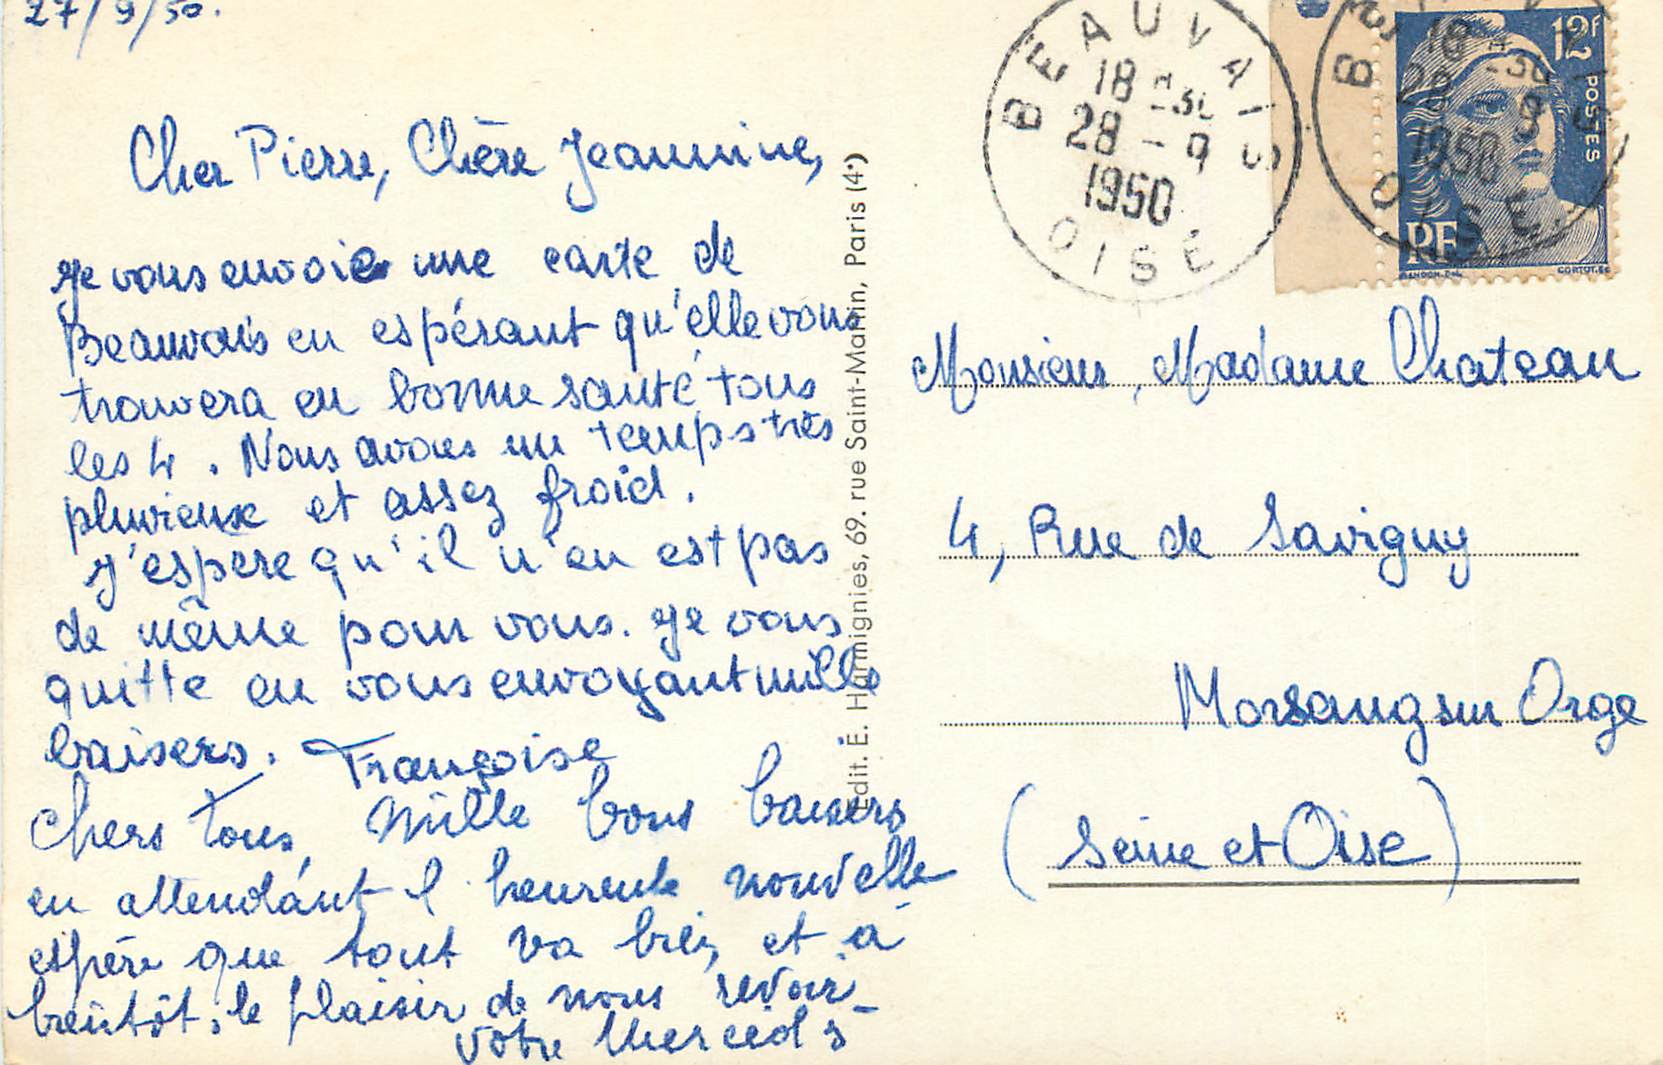 27/9/50.
Cher Pierre, Chère Jeannine,
Je vous envoie une carte de
Beauvais en espérant qu'elle vous
trouvera en bonne santé tous
les 4. Nous avons un temps très
pluvieux et assez froid.
J'espere qu'il n'en est pas
de même pour vous. Je vous
quitte en vous envoyant mille
baisers. Françoise
Chers tous, Mille bons baisers
en attendant l'heureuse nouvelle
espère que tout va bien, et à
bientôt, le plaisir de nous revoir
votre Mercedès
Edit. E. Harmignies, 69. rue Saint-Martin, Paris (4e)
BEAUVAIS
18 H 30
28 - 9
1950
OISE
BEAUVAIS
18 H 30
28 - 9
1950
OISE
12F
POSTES
RF
GANDON. DEL.
CORTOT. SC
Monsieur, Madame Chateau
4, Rue de Savigny
Morsang sur Orge
(Seine et Oise)